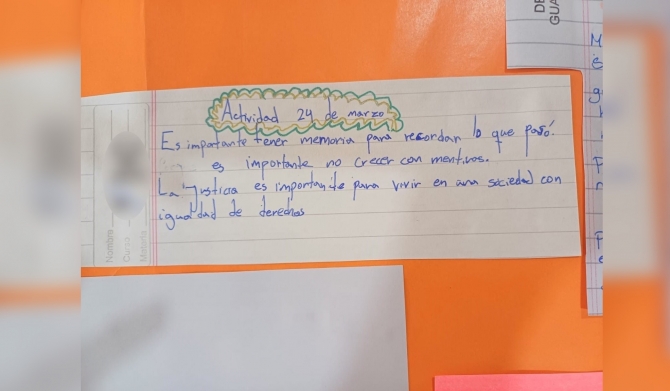 Actividad 24 de marzo
Es importante tener memoria para recordar lo que pasó.
es importante no crecer con mentiras.
La justicia es importante para vivir en una sociedad con
igualdad de derechos
Nombre
Curso
Materia
DE
GUA